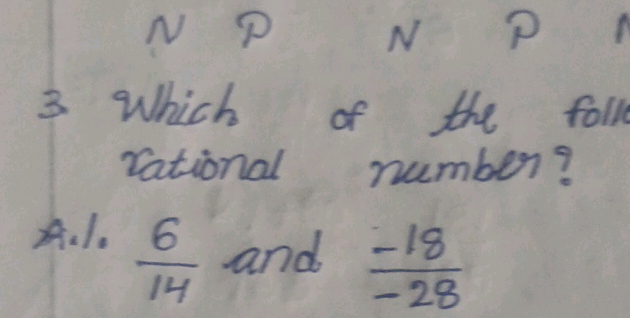 N P N P
3 Which of the
rational number?
A.1. 6/14 and -18/-28